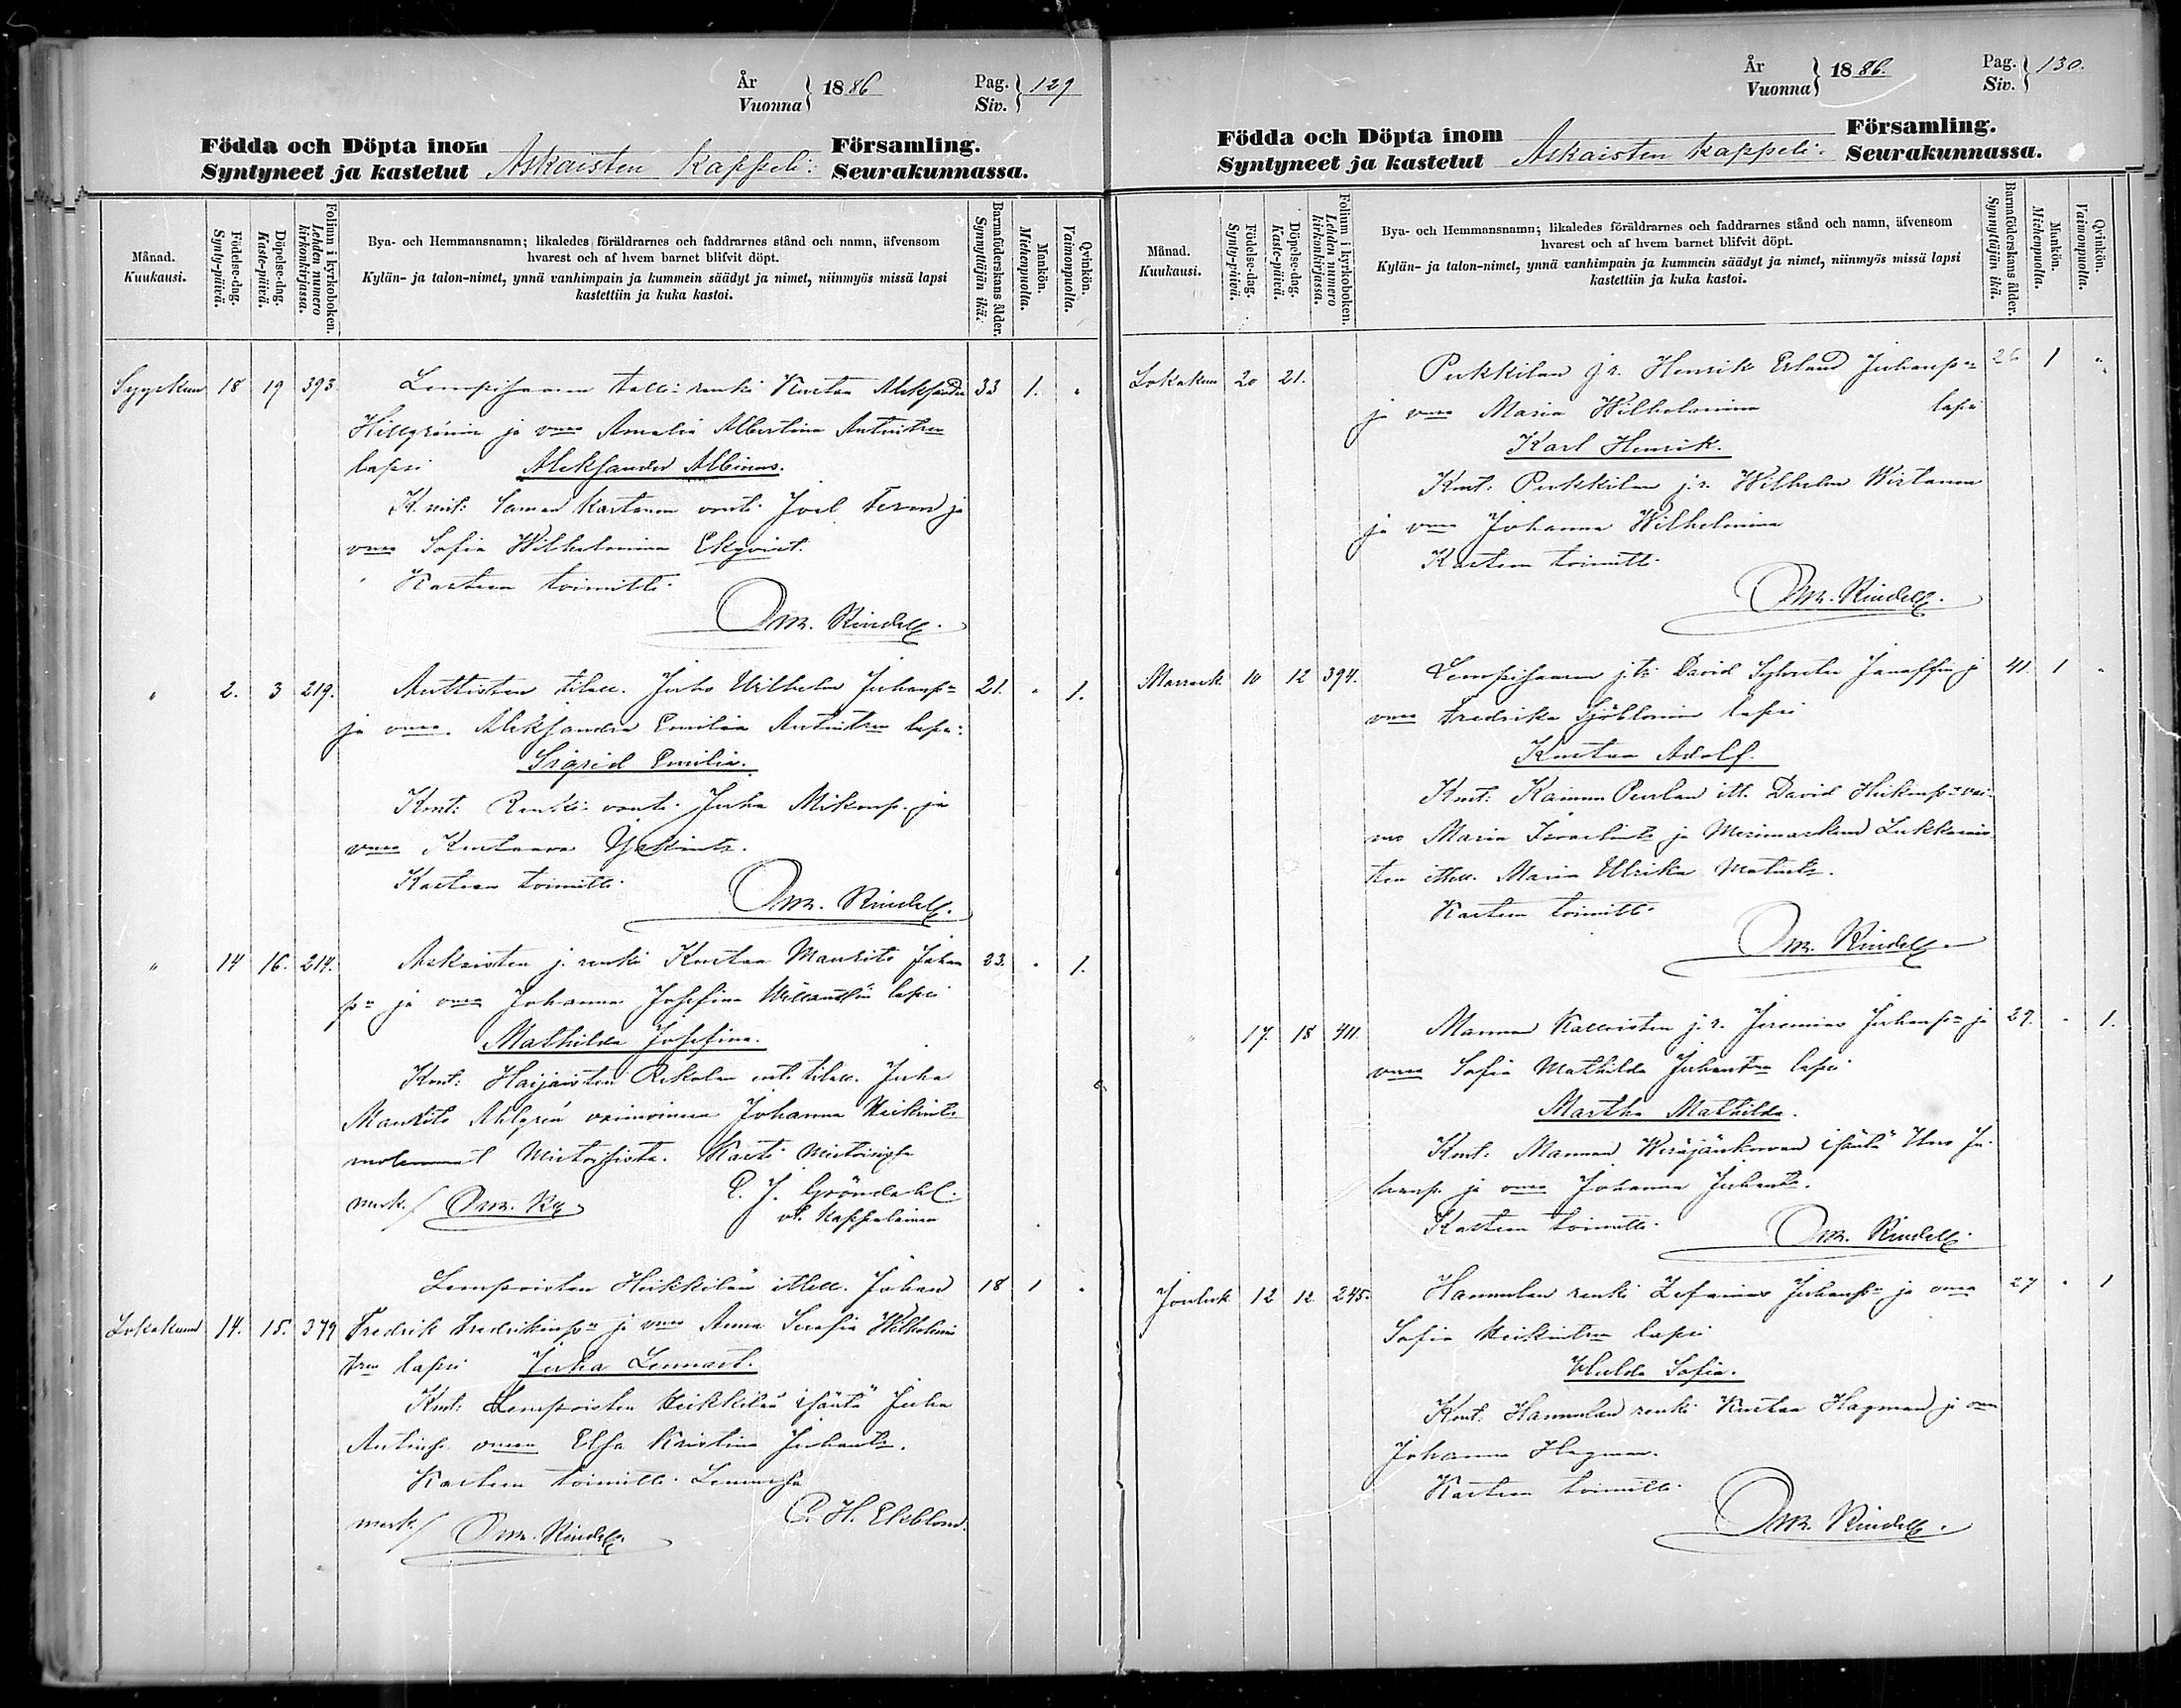 År
Vuonna } 1886
Pag.
Siv. } 129
Födda och Döpta inom
Syntyneet ja kastetut Askaisten Kappeli:
Församling.
Seurakunnassa.
Månad.
Kuukausi.
Födelse-dag.
Synty-päivä.
Döpelse-dag.
Kaste-päivä.
Folium i kyrkoboken.
Lehden numero kirkonkirjassa.
Bya- och Hemmansnamn; likaledes föräldrarnes och faddrarnes stånd och namn, äfvensom
hvarest och af hvem barnet blifvit döpt.
Kylän- ja talon-nimet, ynnä vanhimpain ja kummein säädyt ja nimet, niinmyös missä lapsi
kastettiin ja kuka kastoi.
Barnaföderskans ålder.
Synnyttäjän ikä.
Mankön.
Miehenpuolta.
Qvinkön.
Vaimonpuolta.
Syyskuu 18 19 393 Lempisaaren talli renki Kustaa Aleksander 33 1. "
Hellgrénin ja vmo Amalia Albertina Antintren
lapsi Aleksander Albinus.
Kmt: Kartanon vouti Joel Teren ja
vmo Sofia Wilhelmina Ekqvist.
Kasteen toimitti
Osk. Rindell.
" 2. 3 219. Auttisten tilall. Juho Wilhelm Juhanp. 21. " 1.
ja vmo. Aleksandra Emilia Antintren lapsi:
Sigrid Emilia.
Kmt: Renki vouti Juha Mikonp. ja
vmo Kustaava
Kasteen toimitti
Rindell.
" 14 16. 214. Askaisten j. renki Kustaa Maurits Juhan 23. " 1.
pn ja vmo Johanna Josefina lapsi
Mathilda Josefina.
Kmt: Haijaisten Rekolan ent. tilall. Juha
Maurits Ahlgrén vaimoineen Johanna Heikint.
molemmat Kasti
C. J. Gröndahl.
merk./ vt. Kappalainen
Lempoisten Heikkilän ittell. Johan 18 1 "
Lokakuun 14. 15. 379 Fredrik Fredrikinpn ja vmo Anna Serafia Wilhelmin
tren lapsi Juha Lennart.
Kmt: Lempoisten Heikkilän isäntä Juha
Antinp. vmoen Elsa Kristina Juhant.
Kasteen toimitti Lemussa
C. H. Ekblom.
merk./ Rindell.
År
Vuonna } 1886.
Pag.
Siv. } 130.
Födda och Döpta inom
Syntyneet ja kastetut Askaisten kappeli.
Församling.
Seurakunnassa.
Månad.
Kuukausi.
Födelse-dag.
Synty-päivä.
Döpelse-dag.
Kaste-päivä.
Folium i kyrkoboken.
Lehden numero kirkonkirjassa.
Bya- och Hemmansnamn; likaledes föräldrarnes och faddrarnes stånd och namn, äfvensom
hvarest och af hvem barnet blifvit döpt.
Kylän- ja talon-nimet, ynnä vanhimpain ja kummein säädyt ja nimet, niinmyös missä lapsi
kastettiin ja kuka kastoi.
Barnaföderskans ålder.
Synnyttäjän ikä.
Mankön.
Miehenpuolta.
Qvinkön.
Vaimonpuolta.
Lokakuu 20 21. Pukkilan j.r. Henrik Erland Juhanpn 26 1 "
ja vmo Maria Wilhelmina lapsi
Karl Henrik.
Kmt: Pukkilan j.r. Wilhelm Wirtanen
ja vmo Johanna Wilhelmina
Kasteen toimitti
Rindell.
Marrask 10 12 394. Lempisaaren j.tr. David Sylvester Janaffin ja 41. 1 "
vmo Fredrika Sjöblomin lapsi
Kustaa Adolf.
Kmt: Kaimon Puslan itt. David Heikinp. vai-
mo Maria Israelint. ja Merimaskun Lukkarais
ten ittell. Maria Ulrika Matint.
Kasteen toimitti
Rindell.
" 17. 18 411. Mannun Kalloisten j.r. Jeremias Juhanpn ja 29. " 1.
vmo Sofia Mathilda Juhantren lapsi
Martha Mathilda.
Kmt: Mannun isäntä Juho Ju-
hanp. ja vmo Johanna Juhant.
Kasteen toimitti
Rindell.
Jouluk 12 12 245. Hannulan renki Zefanias Juhanpn ja vmo 27 " 1
Sofia Heikintren lapsi
Hulda Sofia.
Kmt: Hannulan renki Kustaa Hagman ja vmo
Johanna Hagman.
Kasteen toimitti
Rindell.